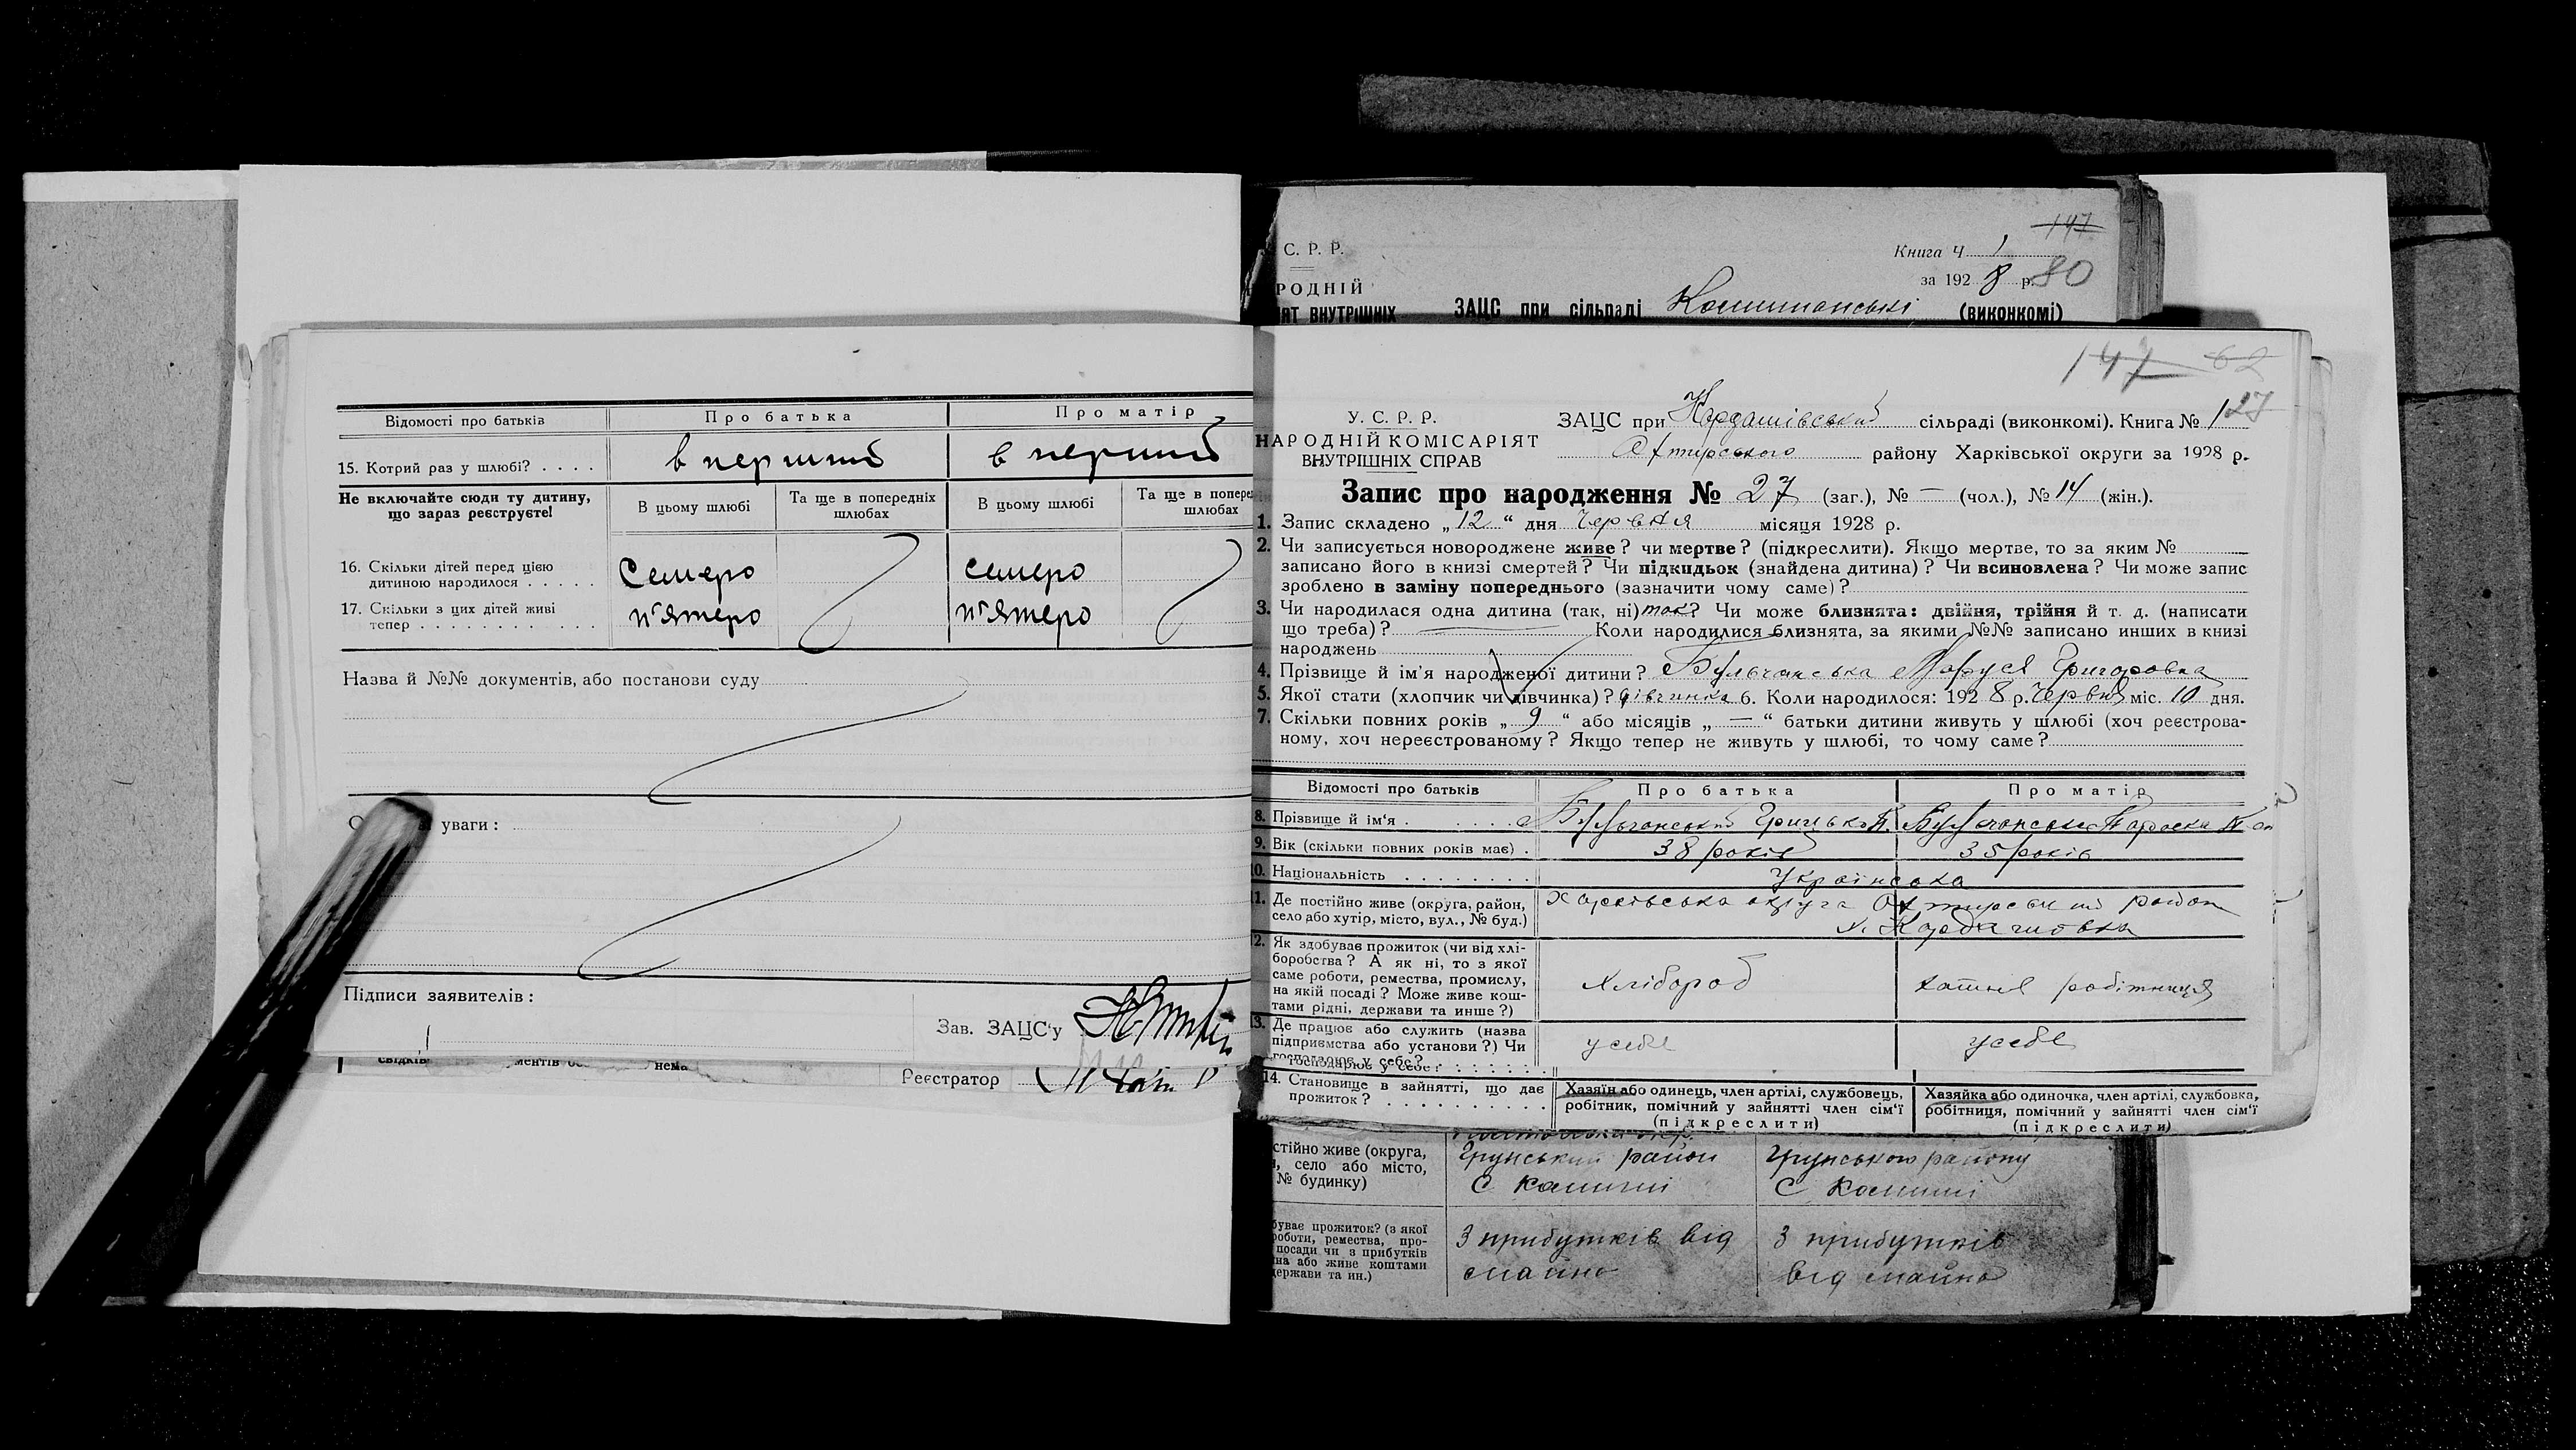 Відомості про батьків
Про батька
Про матір
15. Котрий раз у шлюбі? . . . .
в перший
в перший
Не включайте сюди ту дитину,
що зараз реєструєте!
В цьому шлюбі
Та ще в попередніх
шлюбах
В цьому шлюбі
Та ще в попере
шлюбах
16. Скільки дітей перед цією
дитиною народилося . . . . .
Семеро
семеро
17. Скільки з цих дітей живі
тепер . . . . . . . . . . . .
п'ятеро
п'ятеро
Назва й №№ документів, або постанови суду
уваги :
Підписи заявителів :
Зав. ЗАЦС'у
Реєстратор
С. Р. Р.
147
Книга Ч 1
РОДНІЙ
за 1928 р. 80
ЯТ ВНУТРІШНІХ
ЗАЦС при сільраді
(виконкомі)
147 62
У. С. Р. Р.
НАРОДНІЙ КОМІСАРІЯТ
ВНУТРІШНІХ СПРАВ
ЗАЦС при Кардашівський сільраді (виконкомі). Книга № 1 27
Охтирського району Харківської округи за 1928 р.
Запис про народження № 27 (заг.), № — (чол.), № 14 (жін.).
1. Запис складено „12“ дня Червня місяця 1928 р.
2. Чи записується новороджене живе? чи мертве? (підкреслити). Якщо мертве, то за яким №
записано його в книзі смертей? Чи підкидьок (знайдена дитина)? Чи всиновлена? Чи може запис
зроблено в заміну попереднього (зазначити чому саме)?
3. Чи народилася одна дитина (так, ні) так? Чи може близнята: двійня, трійня й т. д. (написати
що треба)? — Коли народилися близнята, за якими №№ записано инших в книзі
народжень
4. Прізвище й ім'я народженої дитини? Бульчанська Маруся Григоровна
5. Якої стати (хлопчик чи дівчинка)? дівчинка 6. Коли народилося: 1928 р. Червня міс. 10 дня.
7. Скільки повних років „9“ або місяців „—“ батьки дитини живуть у шлюбі (хоч реєстрова-
ному, хоч нереєстрованому? Якщо тепер не живуть у шлюбі, то чому саме?
Відомості про батьків
Про батька
Про матір
8. Прізвище й ім'я .
Бульчанський Грицько
Бульчанська Параска
9. Вік (скільки повних років має) .
38 років
35 років
10. Національність . . . . . . . .
Українська
11. Де постійно живе (округа, район,
село або хутір, місто, вул., № буд.)
Харківська округа Охтирський район
х. Кардашовка
12. Як здобуває прожиток (чи від хлі-
боробства? А як ні, то з якої
саме роботи, ремества, промислу,
на якій посаді? Може живе кош-
тами рідні, держави та инше?)
Хлібороб
хатня робітниця
13. Де працює або служить (назва
підприємства або установи?) Чи
господарює у себе?
у себе
у себе
14. Становище в зайнятті, що дає
прожиток? . . . . . . . . . .
Хазяїн або одинець, член артілі, службовець,
робітник, помічний у зайнятті член сім'ї
(підкреслити)
Хазяйка або одиночка, член артілі, службовка,
робітниця, помічний у зайнятті член сім'ї
(підкреслити)
стійно живе (округа,
, село або місто,
№ будинку)
Грунський район
Грунського району
буває прожиток? (з якої
роботи, ремества, про-
посади чи з прибутків
на або живе коштами
держави та ин.)
З прибутків від
майна
З прибутків
від майна